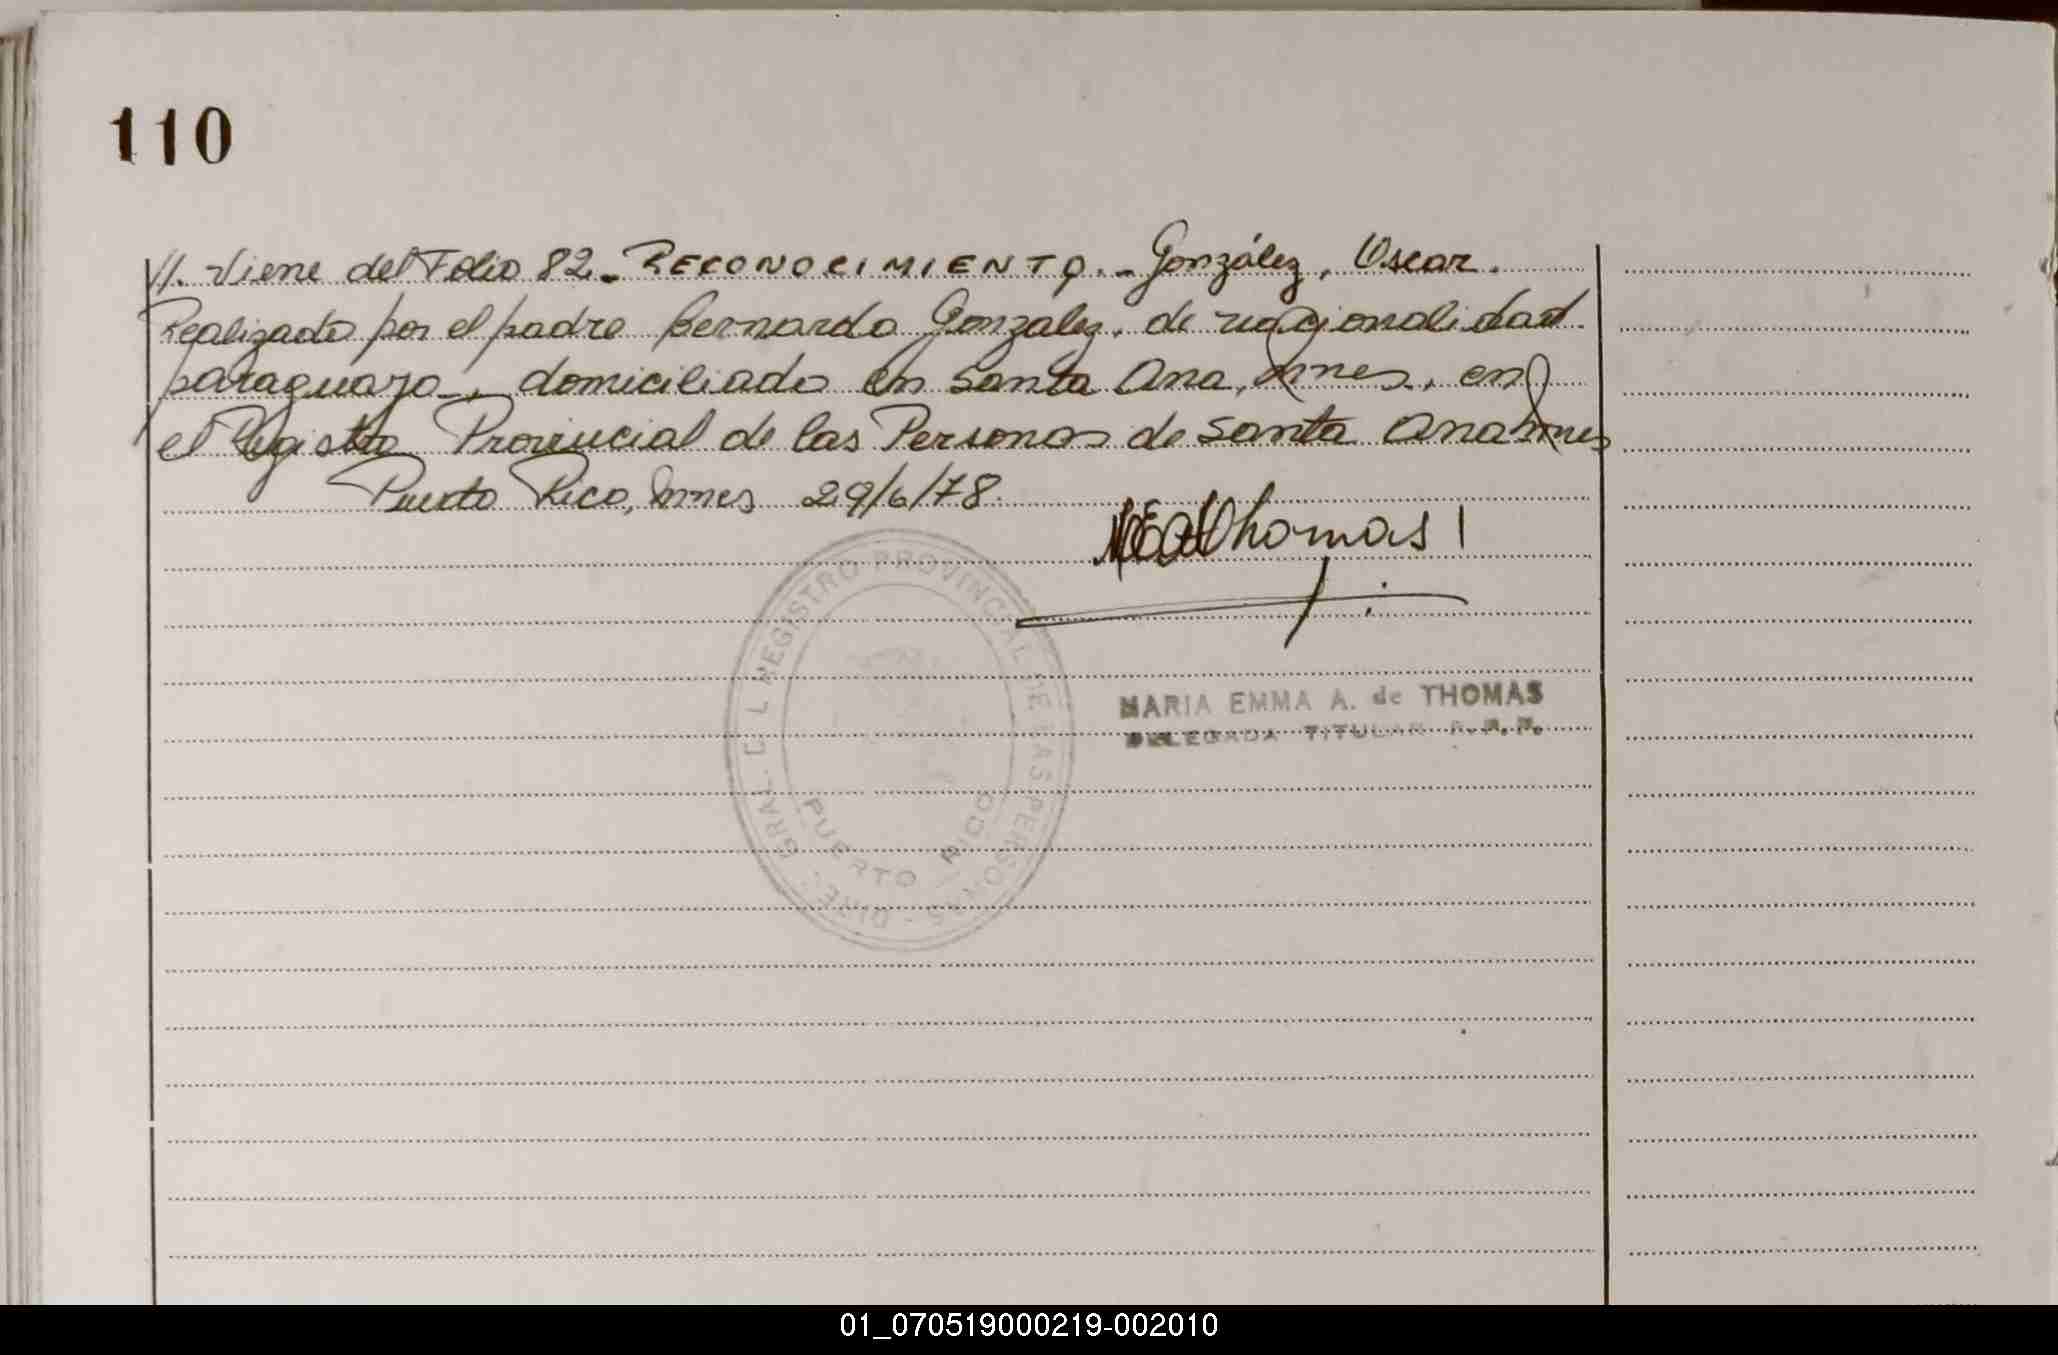 110
//. Viene del Folio 82.- RECONOCIMIENTO.- González, Oscar.
Realizado por el padre Bernardo Gonzalez, de nacionalidad
paraguaya, domiciliado en Santa Ana, Mnes., en
el Registro Provincial de las Personas de Santa Ana Mnes
Puerto Rico, Mnes 29/6/78.
MEAdThomas
DIRE. GRAL. DEL REGISTRO PROVINCIAL DE LAS PERSONAS -
PUERTO RICO
MARIA EMMA A. de THOMAS
DELEGADA TITULAR R.P.P.
01_070519000219-002010